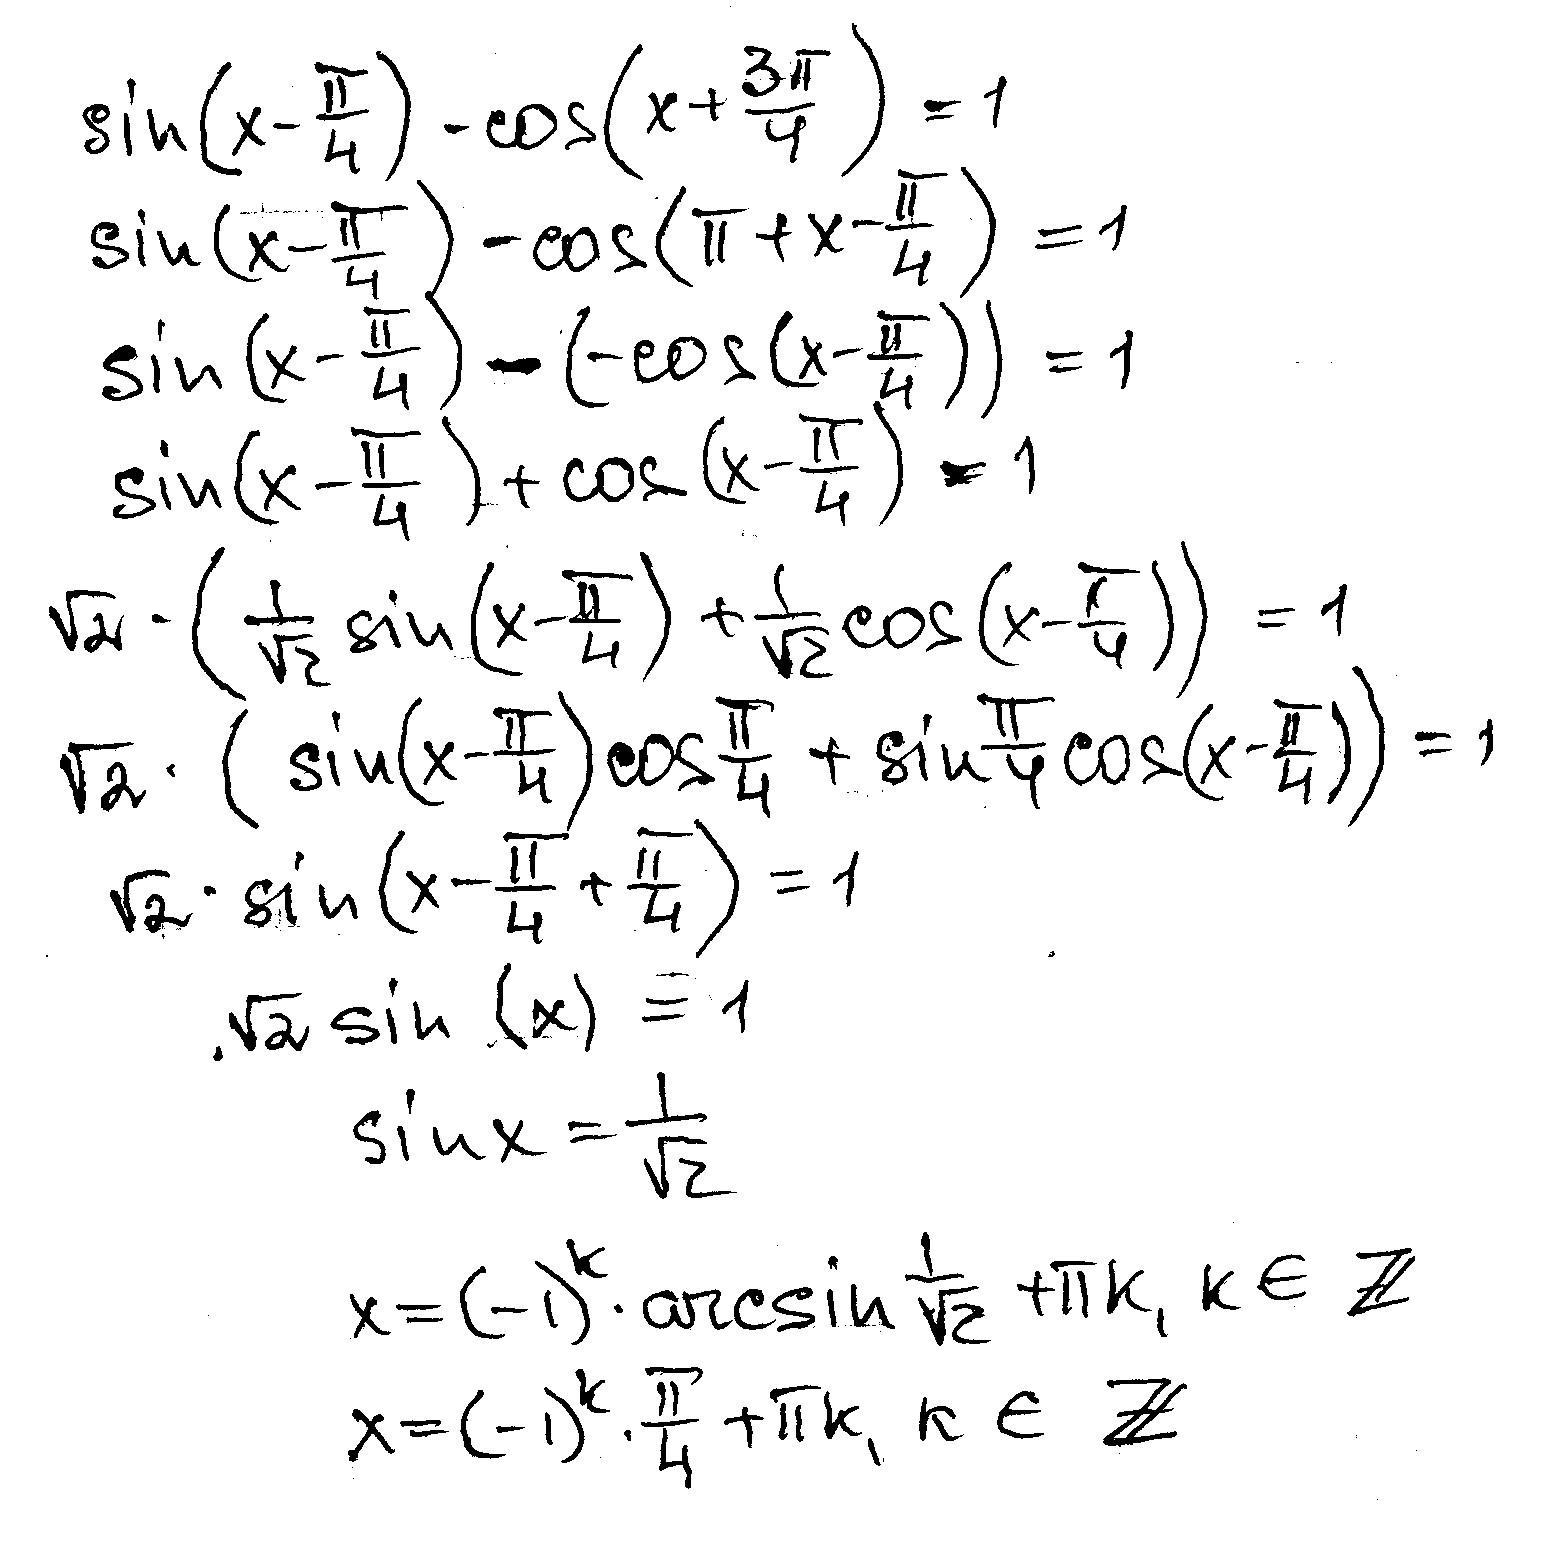 sin(x-π/4) - cos(x+3π/4) = 1
sin(x-π/4) - cos(π+x-π/4) = 1
sin(x-π/4) - (-cos(x-π/4)) = 1
sin(x-π/4) + cos(x-π/4) = 1
√2 · (1/√2 sin(x-π/4) + 1/√2 cos(x-π/4)) = 1
√2 · (sin(x-π/4) cos π/4 + sin π/4 cos(x-π/4)) = 1
√2 · sin(x-π/4+π/4) = 1
√2 sin(x) = 1
sin x = 1/√2
x = (-1)^k · arcsin 1/√2 + πk, k ∈ ℤ
x = (-1)^k · π/4 + πk, k ∈ ℤ